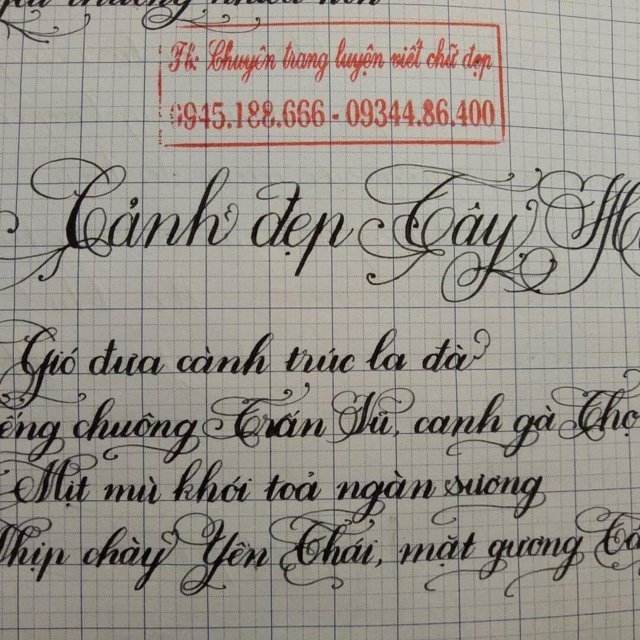 thương nhiều hơn
Fb: Chuyên trang luyện viết chữ đẹp
0945.188.666 - 09344.86.400
Cảnh đẹp Tây H
Gió đưa cành trúc la đà
ếng chuông Trấn Vũ, canh gà Thọ
Mịt mù khói toả ngàn sương
Nhịp chày Yên Thái, mặt gương Tâ